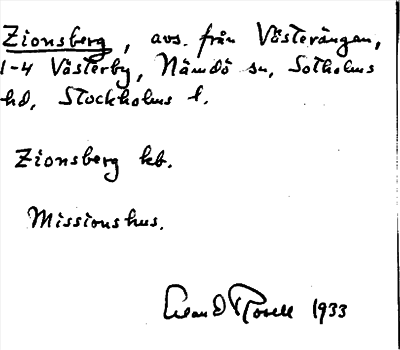 Zionsberg, avs. från Västerängen,
1-4 Västerby, Nämdö sn, Sotholms
hd, Stockholms l.
Zionsberg kb.
Missionshus.
1933